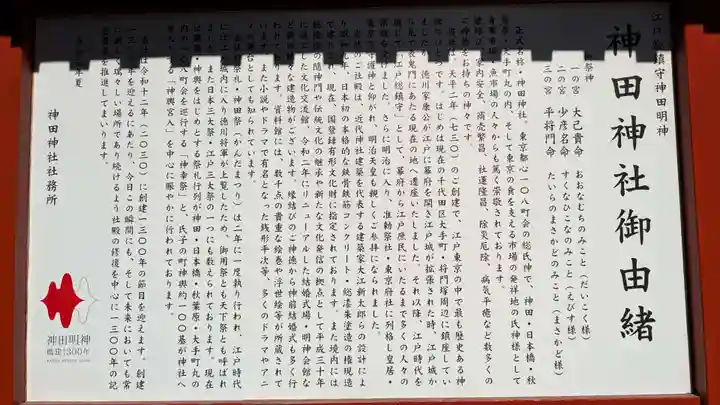 神田神社御由緒
江戸総鎮守神田明神
御祭神
一の宮 大己貴命 おおなむちのみこと（だいこく様）
二の宮 少彦名命 すくなひこなのみこと（えびす様）
三の宮 平将門命 たいらのまさかどのみこと（まさかど様）
正式名称・神田神社。東京都心一〇八町会の総氏神で、神田・日本橋・秋
葉原・大手町丸の内、そして東京の食を支える市場の発祥地の氏神様として
青果市場・魚市場の人々からも篤く崇敬されております。
家内安全、商売繁昌、社運隆昌、除災厄除、病気平癒など数多くの
ご神徳をお持ちの神々です。
は天平二年（七三〇）のご創建で、江戸東京の中で最も歴史ある神
社のひとつです。はじめは現在の千代田区大手町・将門塚周辺に鎮座してい
ましたが、徳川家康公が江戸に幕府を開き江戸城が拡張された時、江戸城か
ら見て表鬼門にあたる現在の地へ遷座いたしました。それ以降、江戸時代を
通じて「江戸総鎮守」として、幕府から江戸庶民にいたるまで多くの人々の
崇敬を受けました。さらに明治に入り、准勅祭社・東京府社に列格し皇居・
東京の守護神と仰がれ、明治天皇も親しくご参拝になられました。
ご社殿は、近代神社建築を代表する建築家大江新太郎らの設計によ
り、日本初の本格的な鉄骨鉄筋コンクリート・総漆朱塗の権現造
で建てられ、現在、国登録有形文化財に指定されております。また境内には
総檜造の隨神門や伝統文化の継承や新たな文化発信の拠点として平成三十年
に竣工した文化交流館、令和二年にリニューアルした結婚式場・明神会館な
ど新旧様々な建造物がございます。縁結びのご神徳から神前結婚式も多く行
われております。資料館には、数千点の貴重な絵巻や浮世絵等が所蔵されて
います。また小説やドラマで有名となった銭形平次等、多くのドラマやアニ
メの舞台としても知られています。
「神田祭（かんだまつり）」は二年に一度執り行われ、江戸時代
には江戸城内に入り徳川将軍が上覧したため、御用祭とも天下祭とも呼ばれ
ました。また日本三大祭・江戸三大祭の一つにも数えられております。現在
は鳳輦・神輿をはじめとする祭礼行列が神田・日本橋・秋葉原・大手町丸の
内の一〇八町会を巡行する「神幸祭」と、氏子の町神輿約一〇〇基が神社へ
参拝にあたる「神輿宮入」を中心に賑やかに行われております。
当社は令和十二年（二〇三〇）に創建一三〇〇年の節目を迎えます。創建
一三〇〇年を迎えるにあたり、今日この瞬間にも、そして未来においても常
に新しく瑞々しい場所であり続けるよう社殿の修復を中心に一三〇〇年の記
念事業を推進してまいります。
年夏
神田神社社務所
神田明神
鎮座1300年